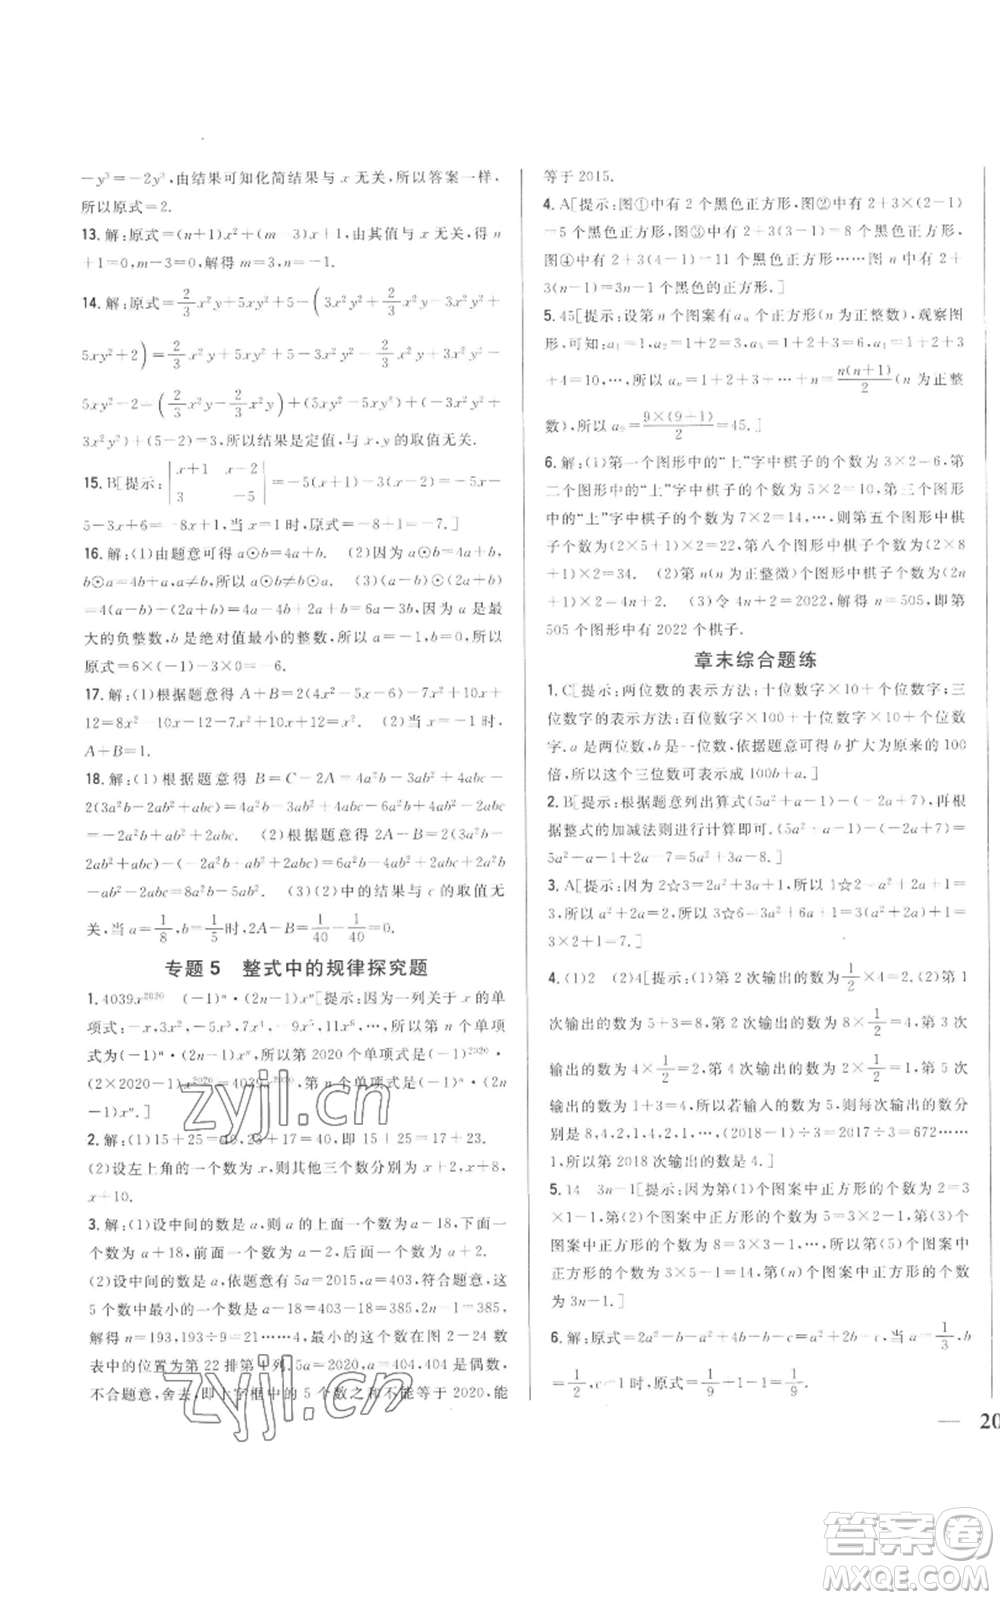 -y³=-2y³,由结果可知化简结果与 x 无关,所以答案一样,
所以原式=2.
13.解:原式=(n+1)x²+(m-3)x+1,由其值与 x 无关,得 n
+1=0,m-3=0,解得 m=3,n=-1.
14.解:原式=2/3x²y+5xy²+5-(2/3x²y+
5xy²+2)=2/3x²y+5xy²+5-2/3x²y-
5xy²-2=(2/3x²y-2/3x²y)+(5xy²-5xy²)+(-2+
5)=3,所以结果是定值,与 x,y 的取值无关.
15.B[提示:|x+1 x-2 3 -5|=-5(x+1)-3(x-2)=-5x-
5-3x+6=-8x+1,当 x=1 时,原式=-8+1=-7.]
16.解:(1)由题意可得 a⊙b=4a+b. (2)因为 a≠b,
b⊙a=4b+a,所以 a⊙b≠b⊙a. (3)(a-b)⊙(2a+b)
=4(a-b)+(2a+b)=4a-4b+2a+b=6a-3b,因为 a 是最
大的负整数,b 是绝对值最小的整数,所以 a=-1,b=0,所以
原式=6×(-1)-3×0=-6.
17.解:(1)根据题意得 A+B=2(4x²-5x-6)+10x+
12=8x²-10x-12+10x+12=8x². (2)当 x=-1 时,
A+B=8.
18.解:(1)根据题意得 B=C-2A=4a²b-3ab²+4abc-
2(3a²b-2ab²+abc)=4a²b-3ab²+4abc-6a²b+4ab²-2abc
=-2a²b+ab²+2abc. (2)根据题意得 2A-B=2(3a²b-
2ab²+abc)-(-2a²b+ab²+2abc)=6a²b-4ab²+2abc+2a²b
-ab²-2abc=8a²b-5ab². (3)(2)中的结果与 c 的取值无
关,当 a=1/8,b=1/5时,2A-B=1/40-1/40=0.
专题 5 整式中的规律探究题
1.4039x²⁰²⁰ (-1)ⁿ·(2n-1)xⁿ[提示:因为一列关于 x 的单
项式:-x,3x²,-5x³,7x⁴,-9x⁵,11x⁶,…,所以第 n 个单项
式为(-1)ⁿ·(2n-1)xⁿ,所以第 2020 个单项式是(-1)²⁰²⁰·
(2×2020-1)x²⁰²⁰=4039x²⁰²⁰,第 n 个单项式是(-1)ⁿ·(2n
-1)xⁿ.]
2.解:(1)15+25=40,23+17=40,即 15+25=17+23.
(2)设左上角的一个数为 x,则其他三个数分别为 x+2,x+8,
x+10.
3.解:(1)设中间的数是 a,则 a 的上面一个数为 a-18,下面一
个数为 a+18,前面一个数为 a-2,后面一个数为 a+2.
(2)设中间的数是 a,依题意有 5a=2015,a=403,符合题意,这
5 个数中最小的一个数是 a-18=403-18=385,2n-1=385,
解得 n=193,193÷9=21……4,最小的数在图 2-24 数
表中的位置为第 22 排第 4 列.5a=2020,a=404,404 是偶数,
不合题意,舍去,即十字框中的 5 个数之和不能等于 2020,能
等于 2015.
4.A[提示:图①中有 2 个黑色正方形,图②中有 2+3×(2-1)
=5 个黑色正方形,图③中有 2+3×(3-1)=8 个黑色正方形,
图④中有 2+3×(4-1)=11 个黑色正方形……图n中有 2+
3(n-1)=3n-1 个黑色的正方形.]
5.45[提示:设第 n 个图案有 aₙ 个正方形(n 为正整数),观察图
形,可知:a₁=1,a₂=1+2=3,a₃=1+2+3=6,a₄=1+2+3
+4=10,…,所以 aₙ=1+2+3+…+n=n(n+1)/2(n 为正整
数),所以 a₉=9×(9+1)/2=45.]
6.解:(1)第一个图形中的"上"字中棋子的个数为 3×2=6,第
二个图形中的"上"字中棋子的个数为 5×2=10,第三个图形中
的"上"字中棋子的个数为 7×2=14,…,则第五个图形中棋
子个数为(2×5+1)×2=22,第八个图形中棋子个数为(2×8
+1)×2=34. (2)第 n(n 为正整微)个图形中棋子个数为(2n
+1)×2=4n+2. (3)令 4n+2=2022,解得 n=505,即第
505 个图形中有 2022 个棋子.
章末综合题练
1.C[提示:两位数的表示方法:十位数字×10+个位数字;三
位数字的表示方法:百位数字×100+十位数字×10+个位数
字.a 是两位数,b 是一位数,依据题意可得 b 扩大为原来的 100
倍,所以这个三位数可表示成 100b+a.]
2.B[提示:根据题意列出算式(5a²+a-1)-(2a+7),再根
据整式的加减法则进行计算即可.(5a²+a-1)-(2a+7)=
5a²+a-1-2a-7=5a²-a-8.]
3.A[提示:因为 2☆3=2a²+3a+1=3,所以 2a²+3a=2,所
以 a²+2a=2,所以 1☆2=a²+2a+1=3,3☆6=3a²+6a+1=
3×2+1=7.]
4.(1)2 (2)4[提示:(1)第 2 次输出的数为1/2×4=2. (2)第 1
次输出的数为 5+3=8,第 2 次输出的数为 8×1/2=4,第 3 次
输出的数为 4×1/2=2,第 4 次输出的数为 2×1/2=1,第 5 次输
出的数为 1+3=4,所以若输入的数为 5,则每次输出的数分
别是 8,4,2,1,4,2,1,…,(2018-1)÷3=2017÷3=672……
1,所以第 2018 次输出的数是 4.]
5.14 3n-1[提示:因为第(1)个图案中正方形的个数为 2=3
×1-1,第(2)个图案中正方形的个数为 5=3×2-1,第(3)个
图案中正方形的个数为 8=3×3-1,…,所以第(5)个图案中
正方形的个数为 3×5-1=14,第(n)个图案中正方形的个数
为 3n-1.]
6.解:原式=2a²-b-a²+b-c=a²-c,当 a=1/3,b
=1/2,c=-1 时,原式=1/9+1=1/9.
— 20
zyjl.cn
zyjl.cn
答案卷
MXQE.COM